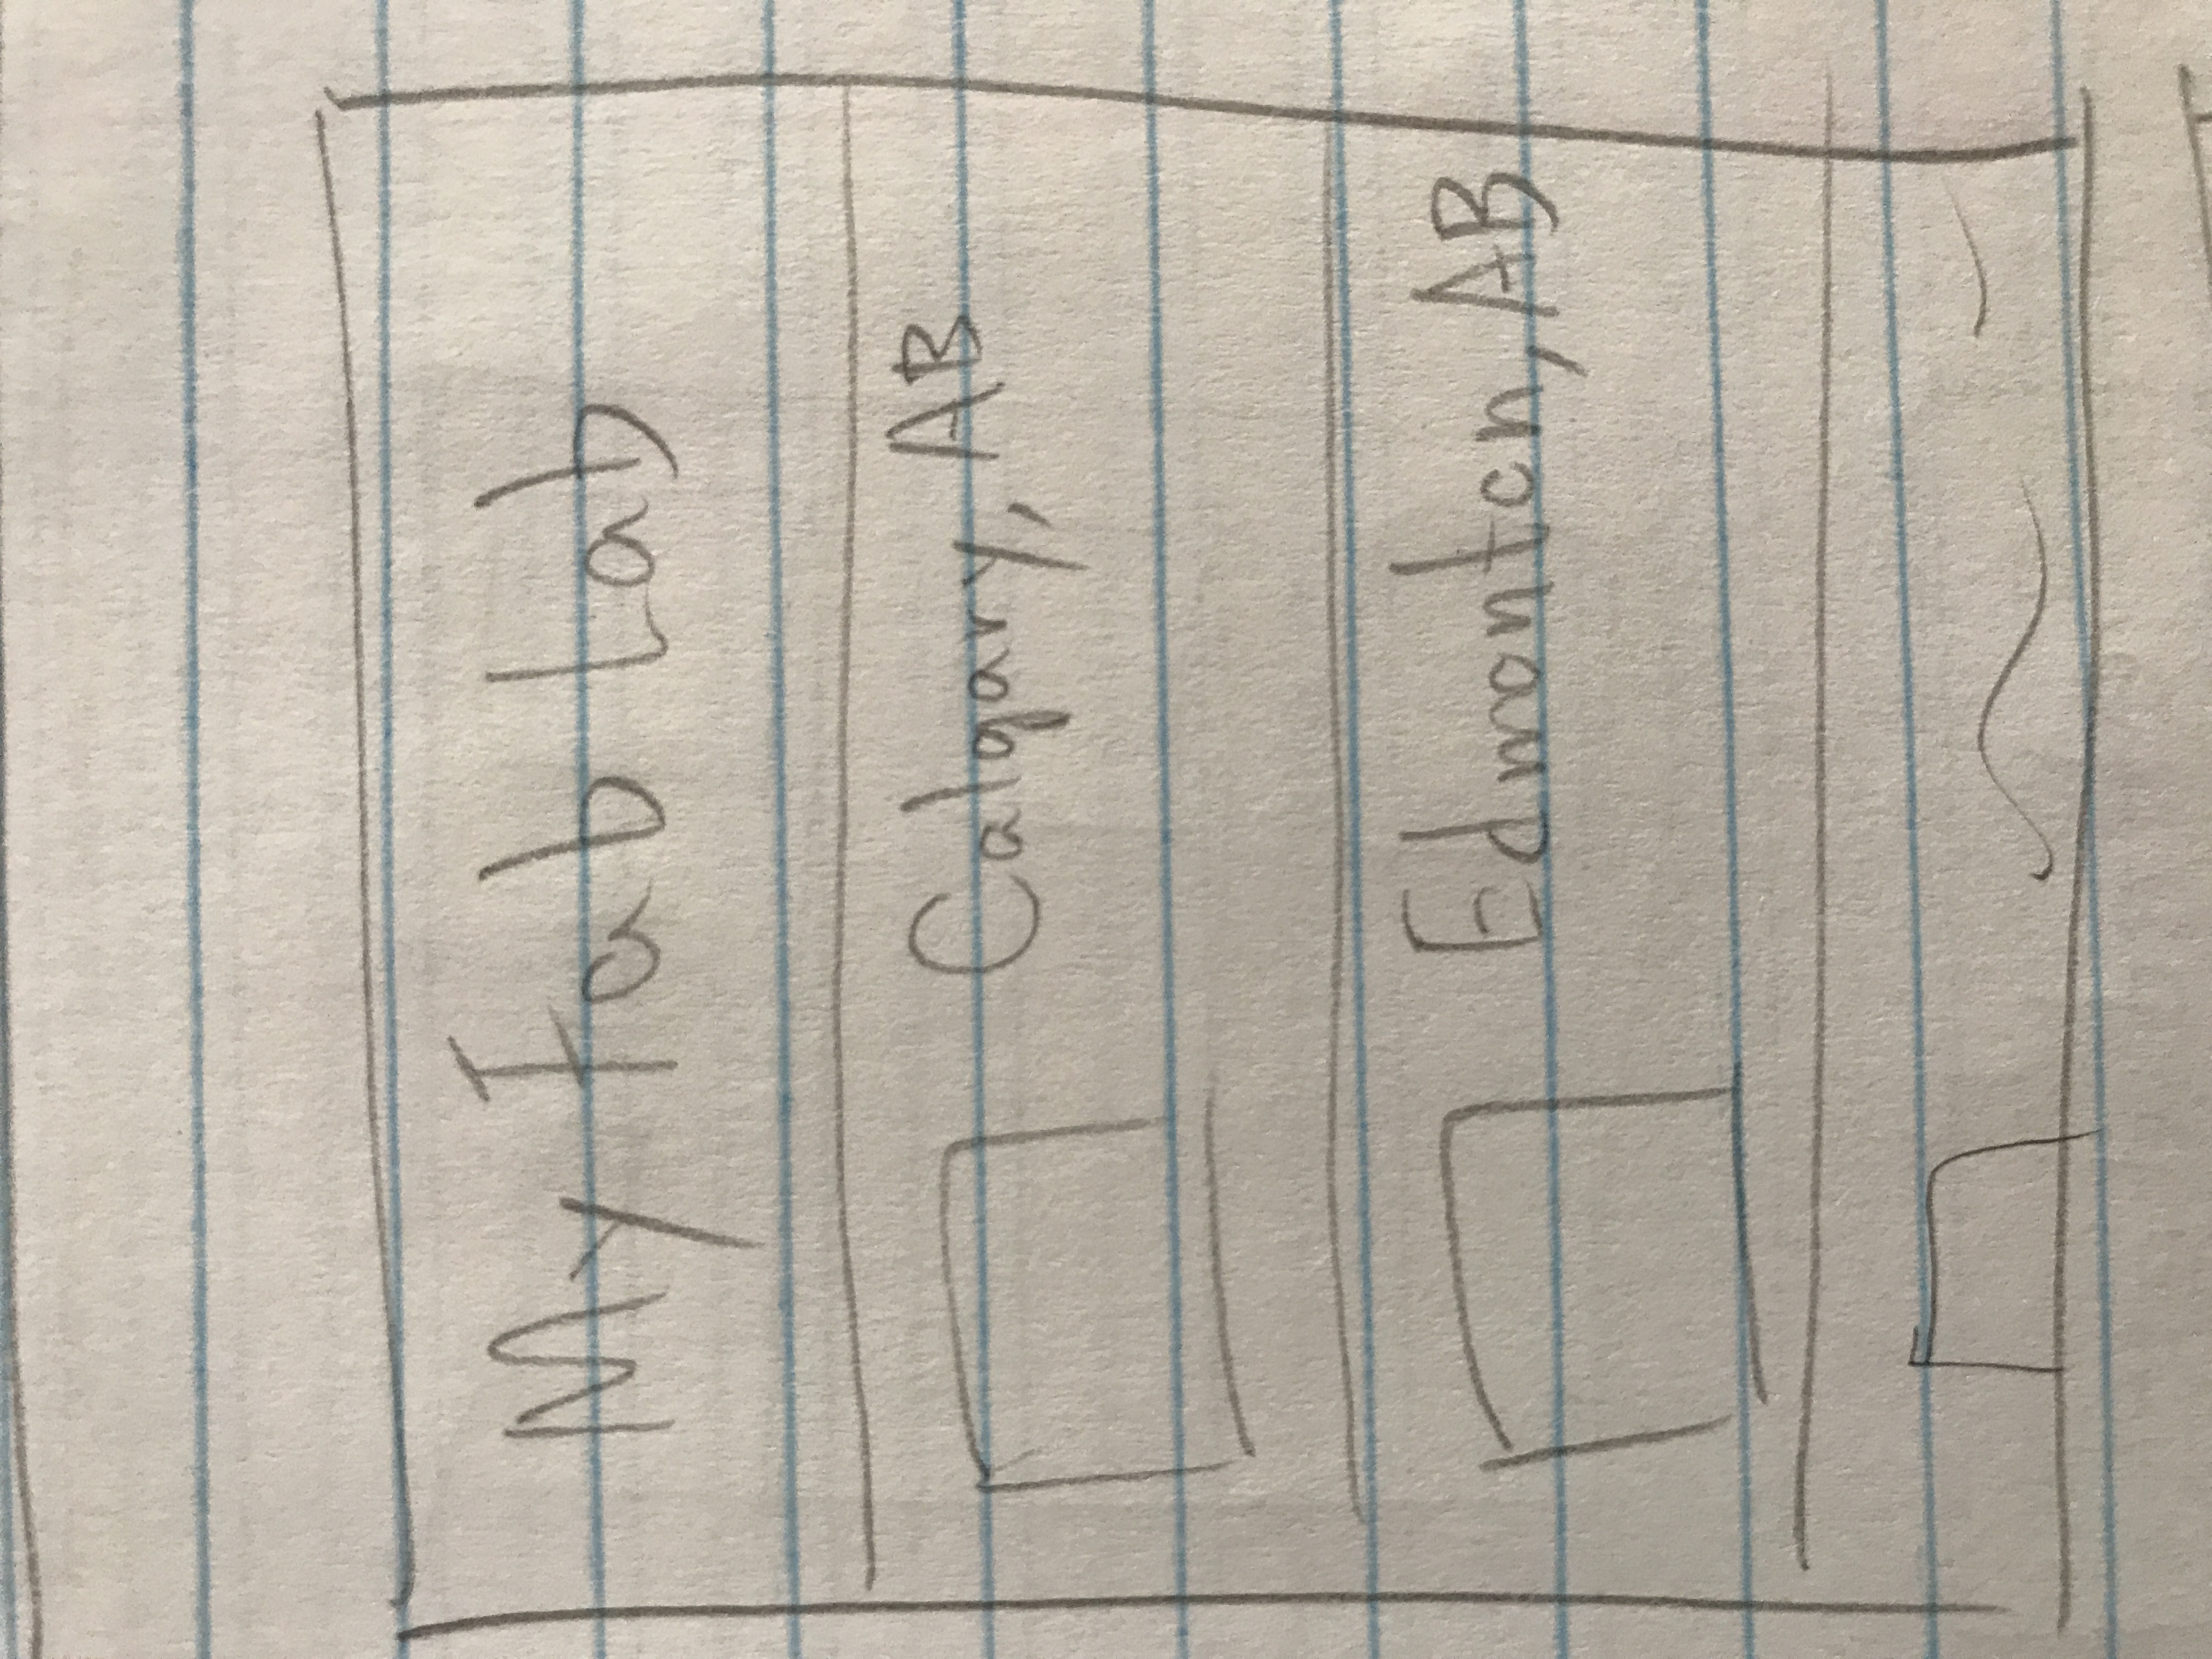 My Fab Lab
Calgary, AB
Edmonton, AB